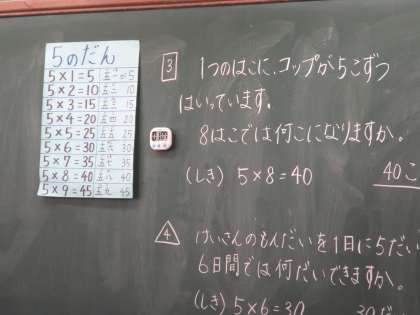 5のだん
5×1=5 五一が5
5×2=10 五二 10
5×3=15 五三 15
5×4=20 五四 20
5×5=25 五五 25
5×6=30 五六 30
5×7=35 五七 35
5×8=40 五八 40
5×9=45 五九 45
3 1つのはこに、コップが5こずつ
はいっています。
8はこでは何こになりますか。
(しき) 5×8=40 40こ
4 けいさんのもんだいを1日に5だい
6日間では何だいできますか。
(しき) 5×6=30 30だい